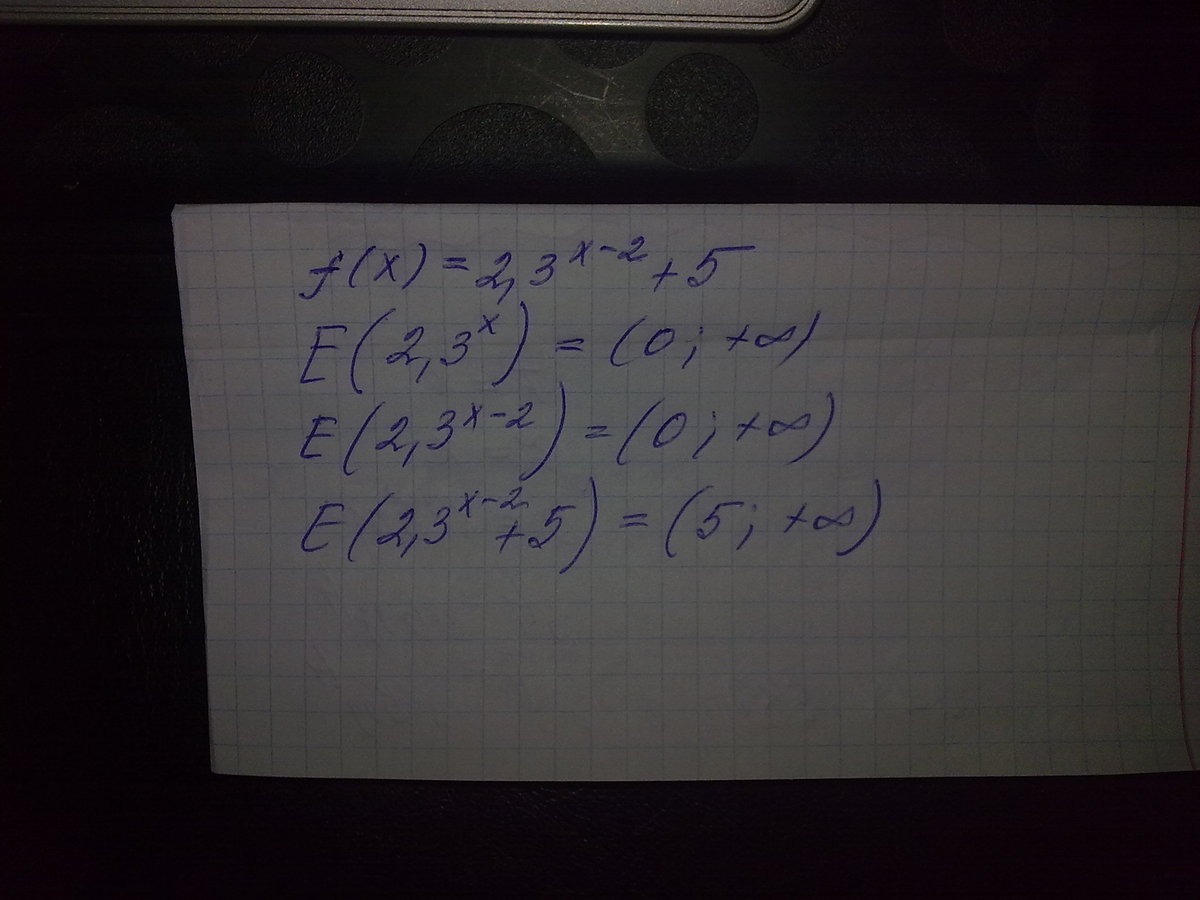 f(x) = 2,3^{x-2} + 5
E(2,3^x) = (0; +∞)
E(2,3^{x-2}) = (0; +∞)
E(2,3^{x-2} + 5) = (5; +∞)